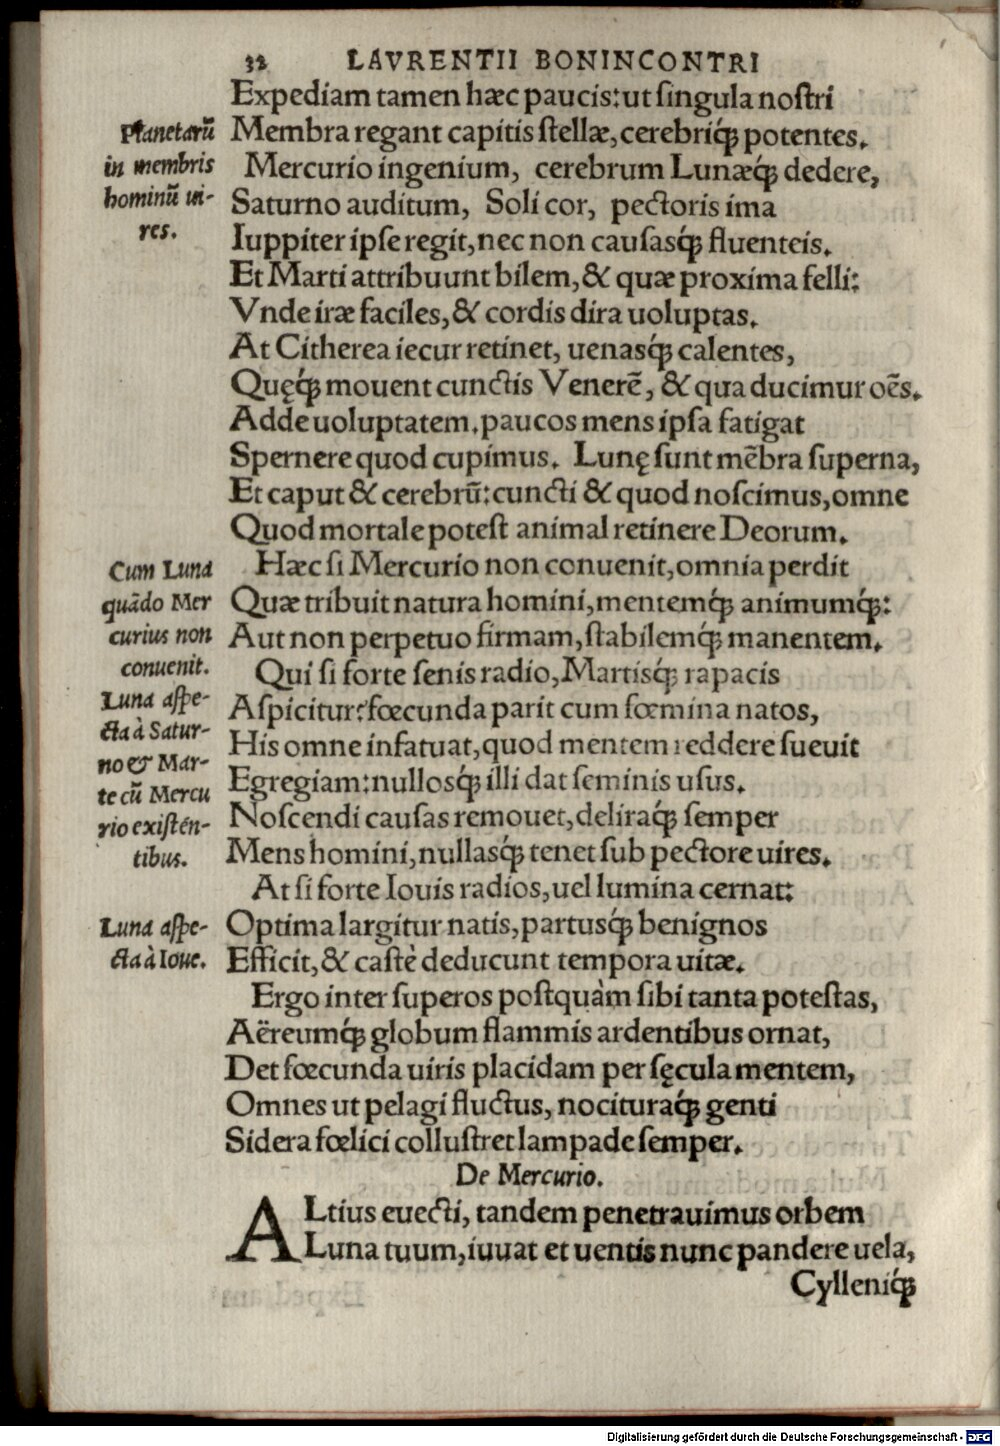 32 LAVRENTII BONINCONTRI
Expediam tamen hæc paucis:ut ſingula noſtri
Membra regant capitis ſtellæ, cerebriq́; potentes.
Mercurio ingenium, cerebrum Lunæq́; dedere,
Saturno auditum, Soli cor, pectoris ima
Iuppiter ipſe regit, nec non cauſasq́; fluenteis.
Et Marti attribuunt bilem, & quæ proxima felli:
Vnde iræ faciles, & cordis dira uoluptas.
At Citherea iecur retinet, uenasq́; calentes,
Quęq́; mouent cunctis Venerẽ, & qua ducimur oẽs.
Adde uoluptatem. paucos mens ipſa fatigat
Spernere quod cupimus. Lunę ſunt mẽbra ſuperna,
Et caput & cerebrũ: cuncti & quod noſcimus, omne
Quod mortale poteſt animal retinere Deorum.
Hæc ſi Mercurio non conuenit, omnia perdit
Quæ tribuit natura homini, mentemq́; animumq́;:
Aut non perpetuo firmam, ſtabilemq́; manentem.
Qui ſi forte ſenis radio, Martisq́; rapacis
Aſpicitur: fœcunda parit cum fœmina natos,
His omne infatuat, quod mentem reddere ſueuit
Egregiam: nullosq́; illi dat ſeminis uſus.
Noſcendi cauſas remouet, deliraq́; ſemper
Mens homini, nullasq́; tenet ſub pectore uires.
At ſi forte Iouis radios, uel lumina cernat:
Optima largitur natis, partusq́; benignos
Efficit, & caſtè deducunt tempora uitæ.
Ergo inter ſuperos poſtquàm ſibi tanta poteſtas,
Aëreumq́; globum flammis ardentibus ornat,
Det fœcunda uiris placidam per ſęcula mentem,
Omnes ut pelagi fluctus, nocituraq́; genti
Sidera fœlici colluſtret lampade ſemper.
De Mercurio.
ALtius euecti, tandem penetrauimus orbem
Luna tuum, iuuat et uentis nunc pandere uela,
Cylleniq́;
Planetarũ
in membris
hominũ ui-
res.
Cum Luna
quãdo Mer
curius non
conuenit.
Luna aſpe-
cta à Satur-
no & Mar-
te cũ Mercu
rio exiſten-
tibus.
Luna aſpe-
cta à Ioue.
Digitalisierung gefördert durch die Deutsche Forschungsgemeinschaft - DFG